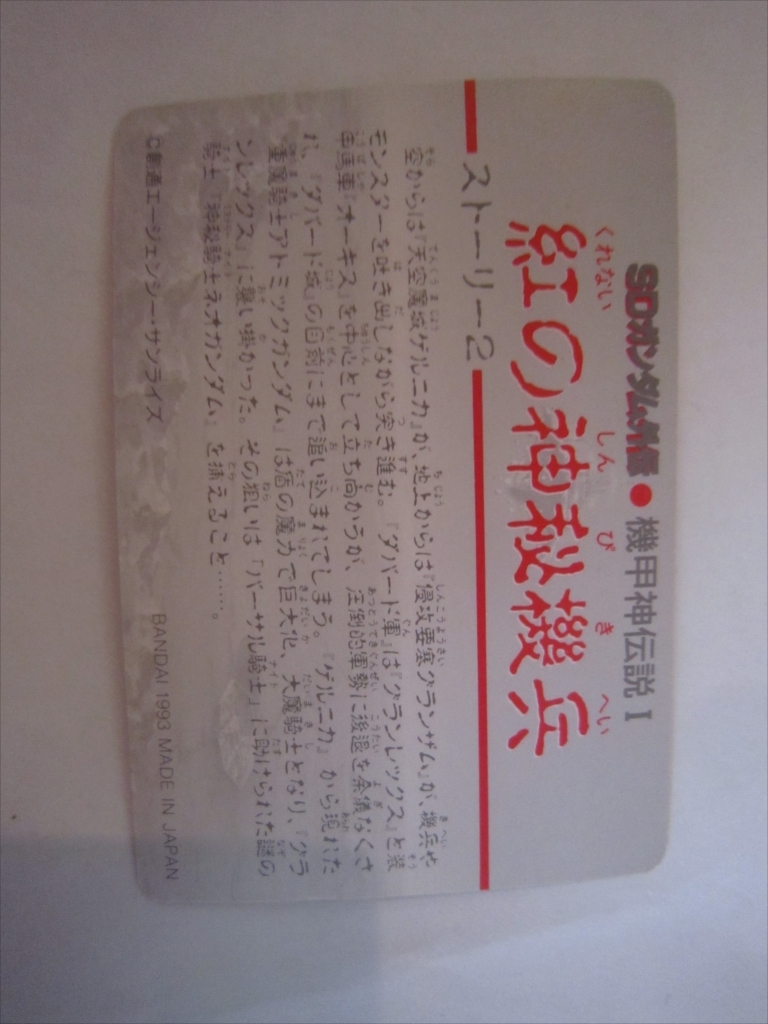 SDガンダム外伝●機甲神伝説 I
紅の神秘機兵
くれない しん ぴ き へい
ストーリー2
空からは『天空魔城ゲルニカ』が、地上からは『侵攻要塞グランザム』が、機兵や
モンスターを吐き出しながら突き進む。『ダバード軍』は『グランレックス』と装
甲馬車『オーキス』を中心として立ち向かうが、圧倒的軍勢に後退を余儀なくさ
れ、『ダバード城』の目前にまで追い込まれてしまう。『ゲルニカ』から現れた
『重魔騎士アトミックガンダム』は盾の魔力で巨大化、大魔騎士となり、『グラ
ンレックス』に襲い掛かった。その狙いは『バーサル騎士』に助けられた謎の
騎士『神秘騎士ネオガンダム』を捕えること……。
©創通エージェンシー・サンライズ
BANDAI 1993 MADE IN JAPAN